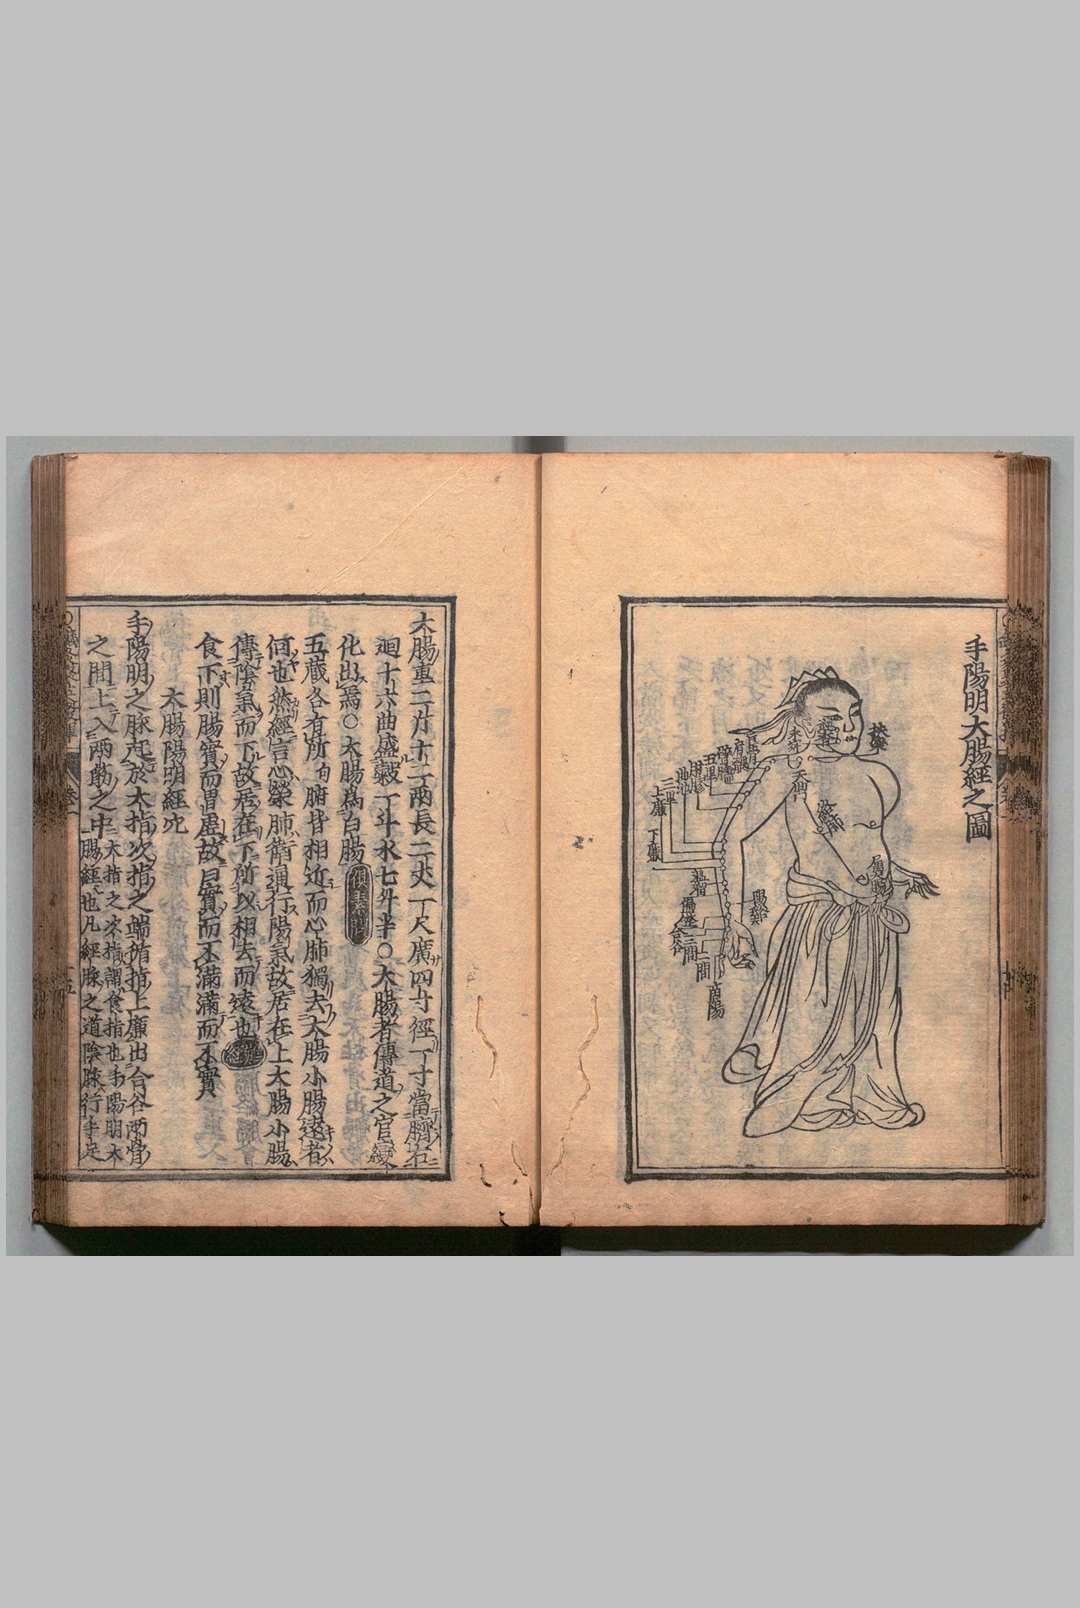 手陽明大腸經之圖
扶突
禾窌
天鼎
肩髃
巨骨
臂臑
五里
肘髎
曲池
三里
上廉
下廉
温溜
偏歴
陽谿
合谷
三間
二間
商陽
大腸重二斤十二兩長二丈一尺廣四寸徑一寸當臍右
廻十六曲盛穀一斗水七升半〇大腸者傳道之官變
化出焉〇大腸爲白腸
五藏各有所腑皆相近而心肺獨去大腸小腸遠者
何也然經言心榮肺衛通行陽氣故居在上大腸小腸
傳陰氣而下故居在下所以相去而遠也
食下則腸實而胃虚故曰實而不滿滿而不實
大腸陽明經穴
手陽明之脉起於大指次指之端循指上廉出合谷兩骨
之間上入兩筋之中
大指之次指謂食指也手陽明大
腸經也凡經脉之道陰脉行手足